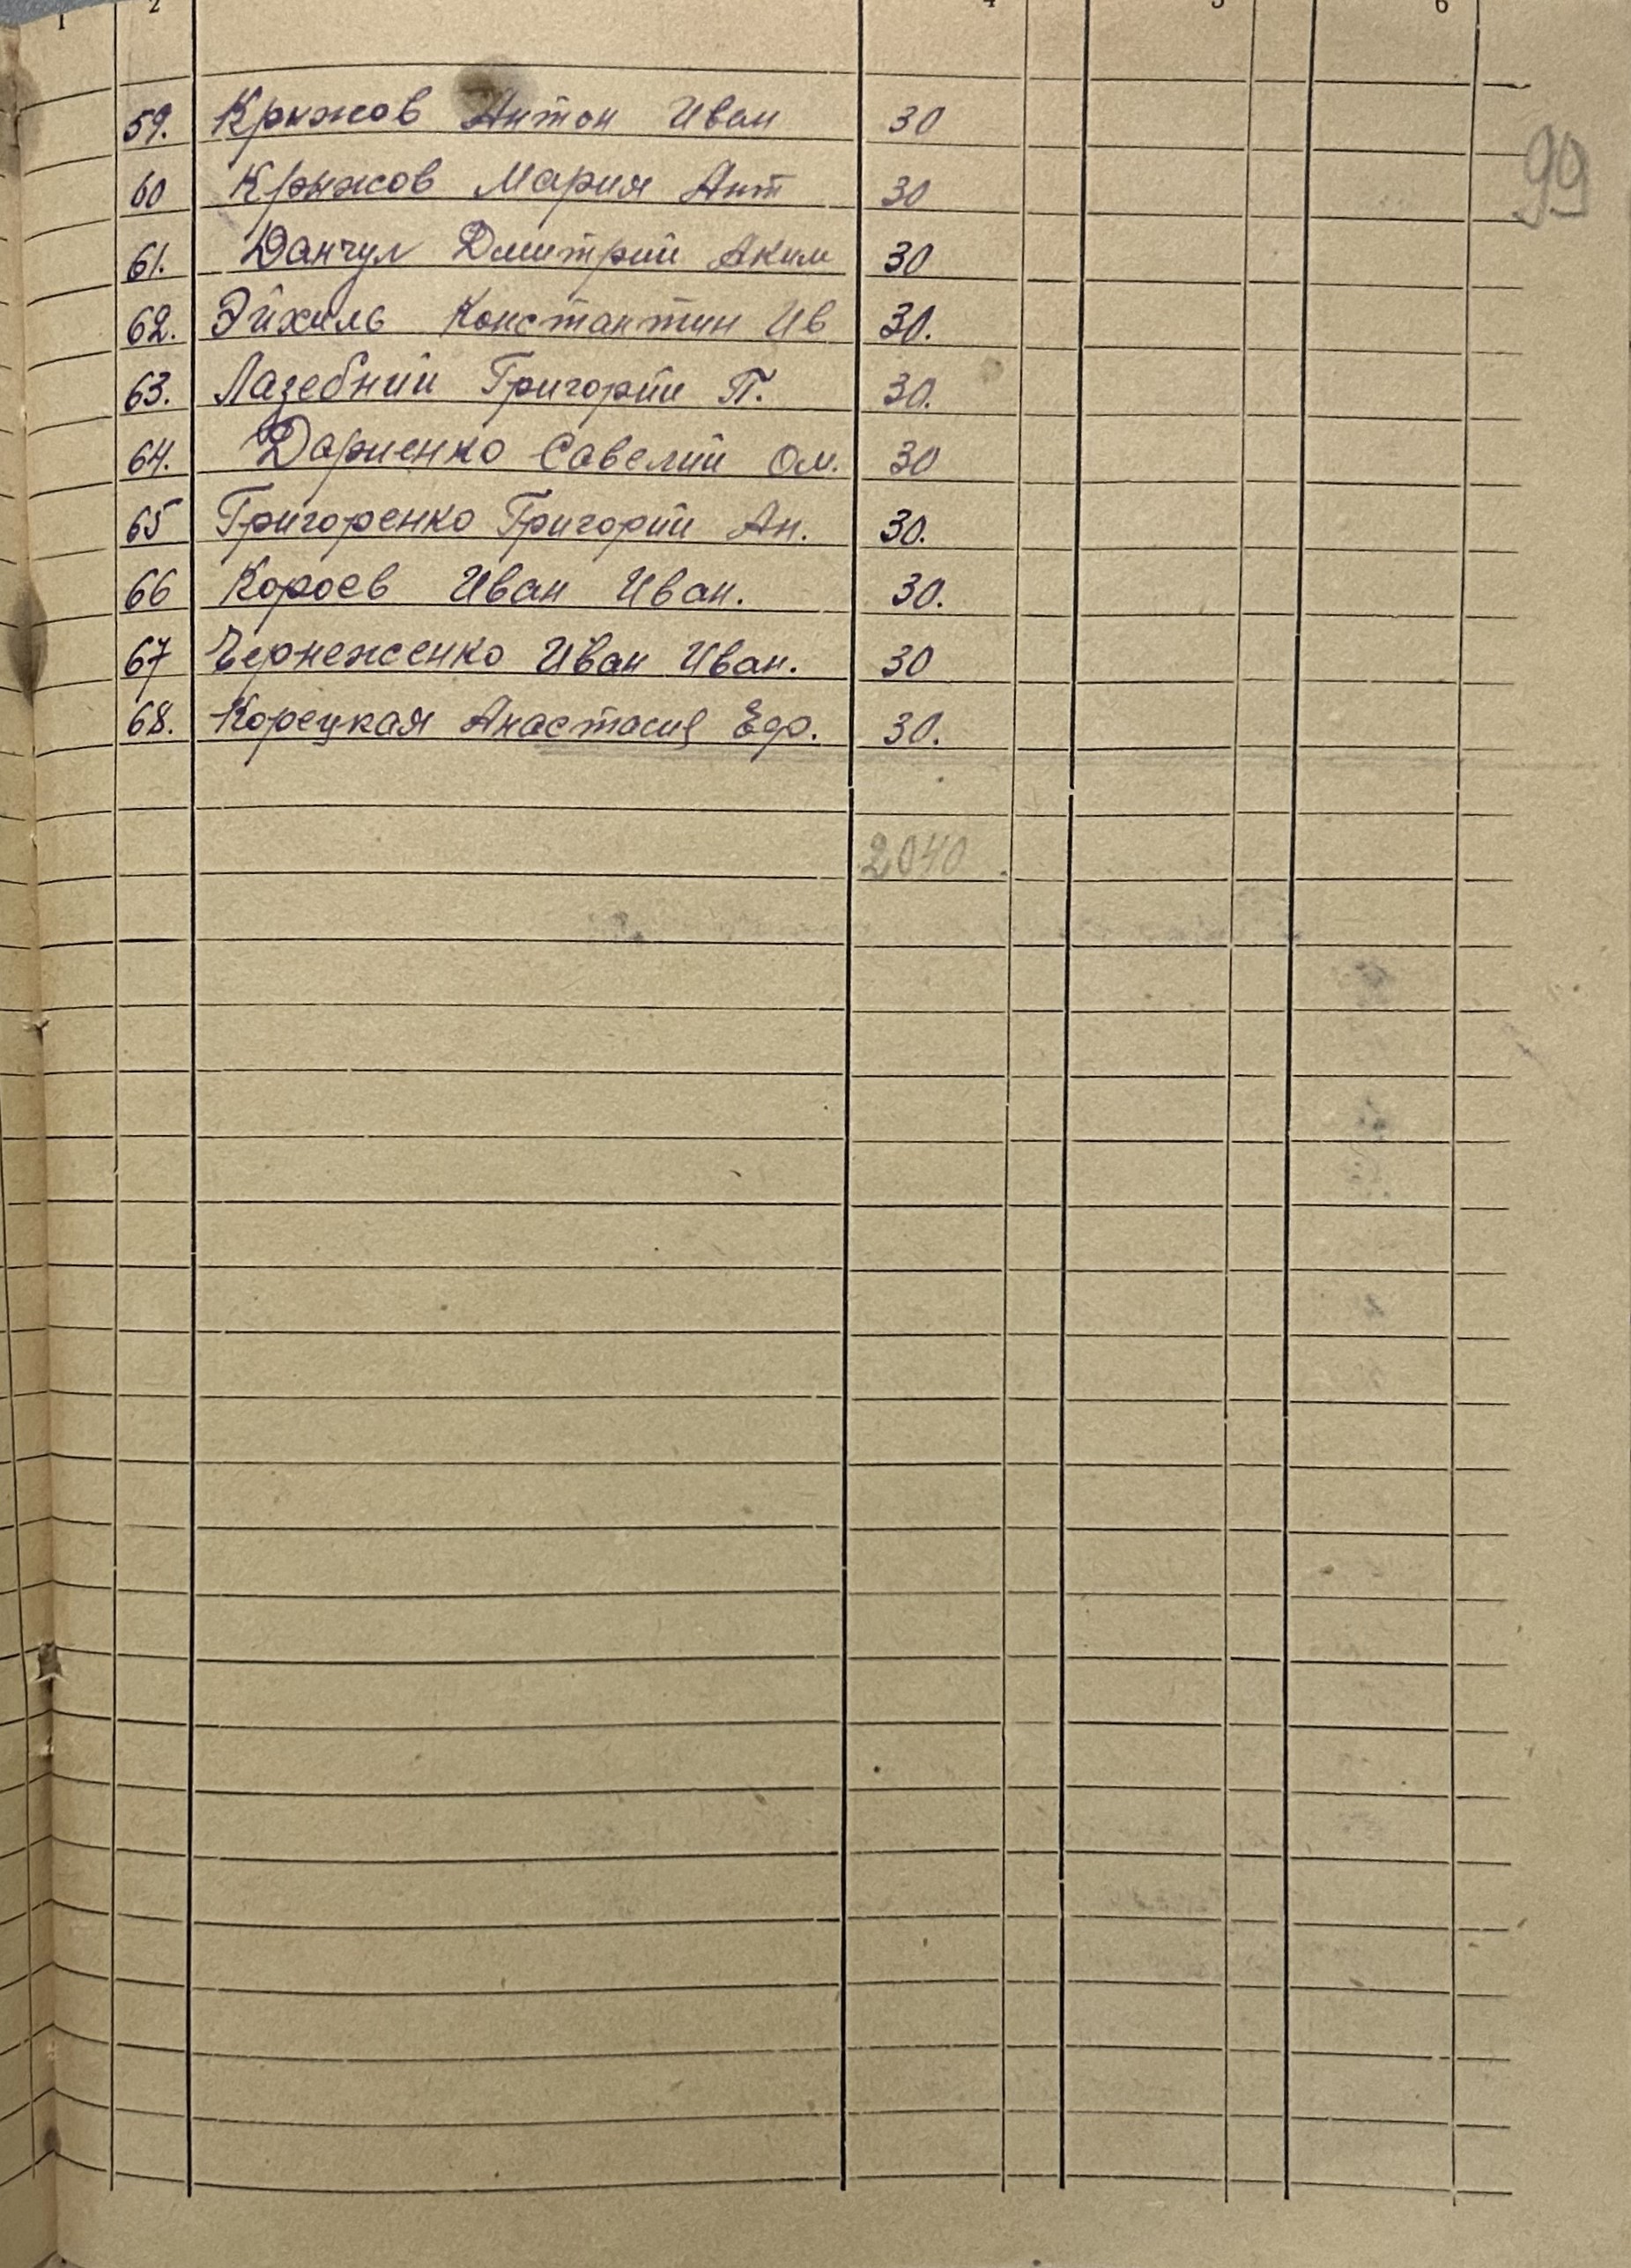 1 2 4 5 6
99
59. Крыжов Антон Иван 30
60 Крыжов Мария Ант 30
61. Данчул Дмитрий Аким 30
62. Эйхиль Константин Ив 30.
63. Лазебний Григорий П. 30.
64. Дориенко Савелий Ом. 30
65 Григоренко Григорий Ан. 30.
66 Короев Иван Иван. 30.
67 Чернеженко Иван Иван. 30
68. Корецкая Анастасия Еф. 30.
2040